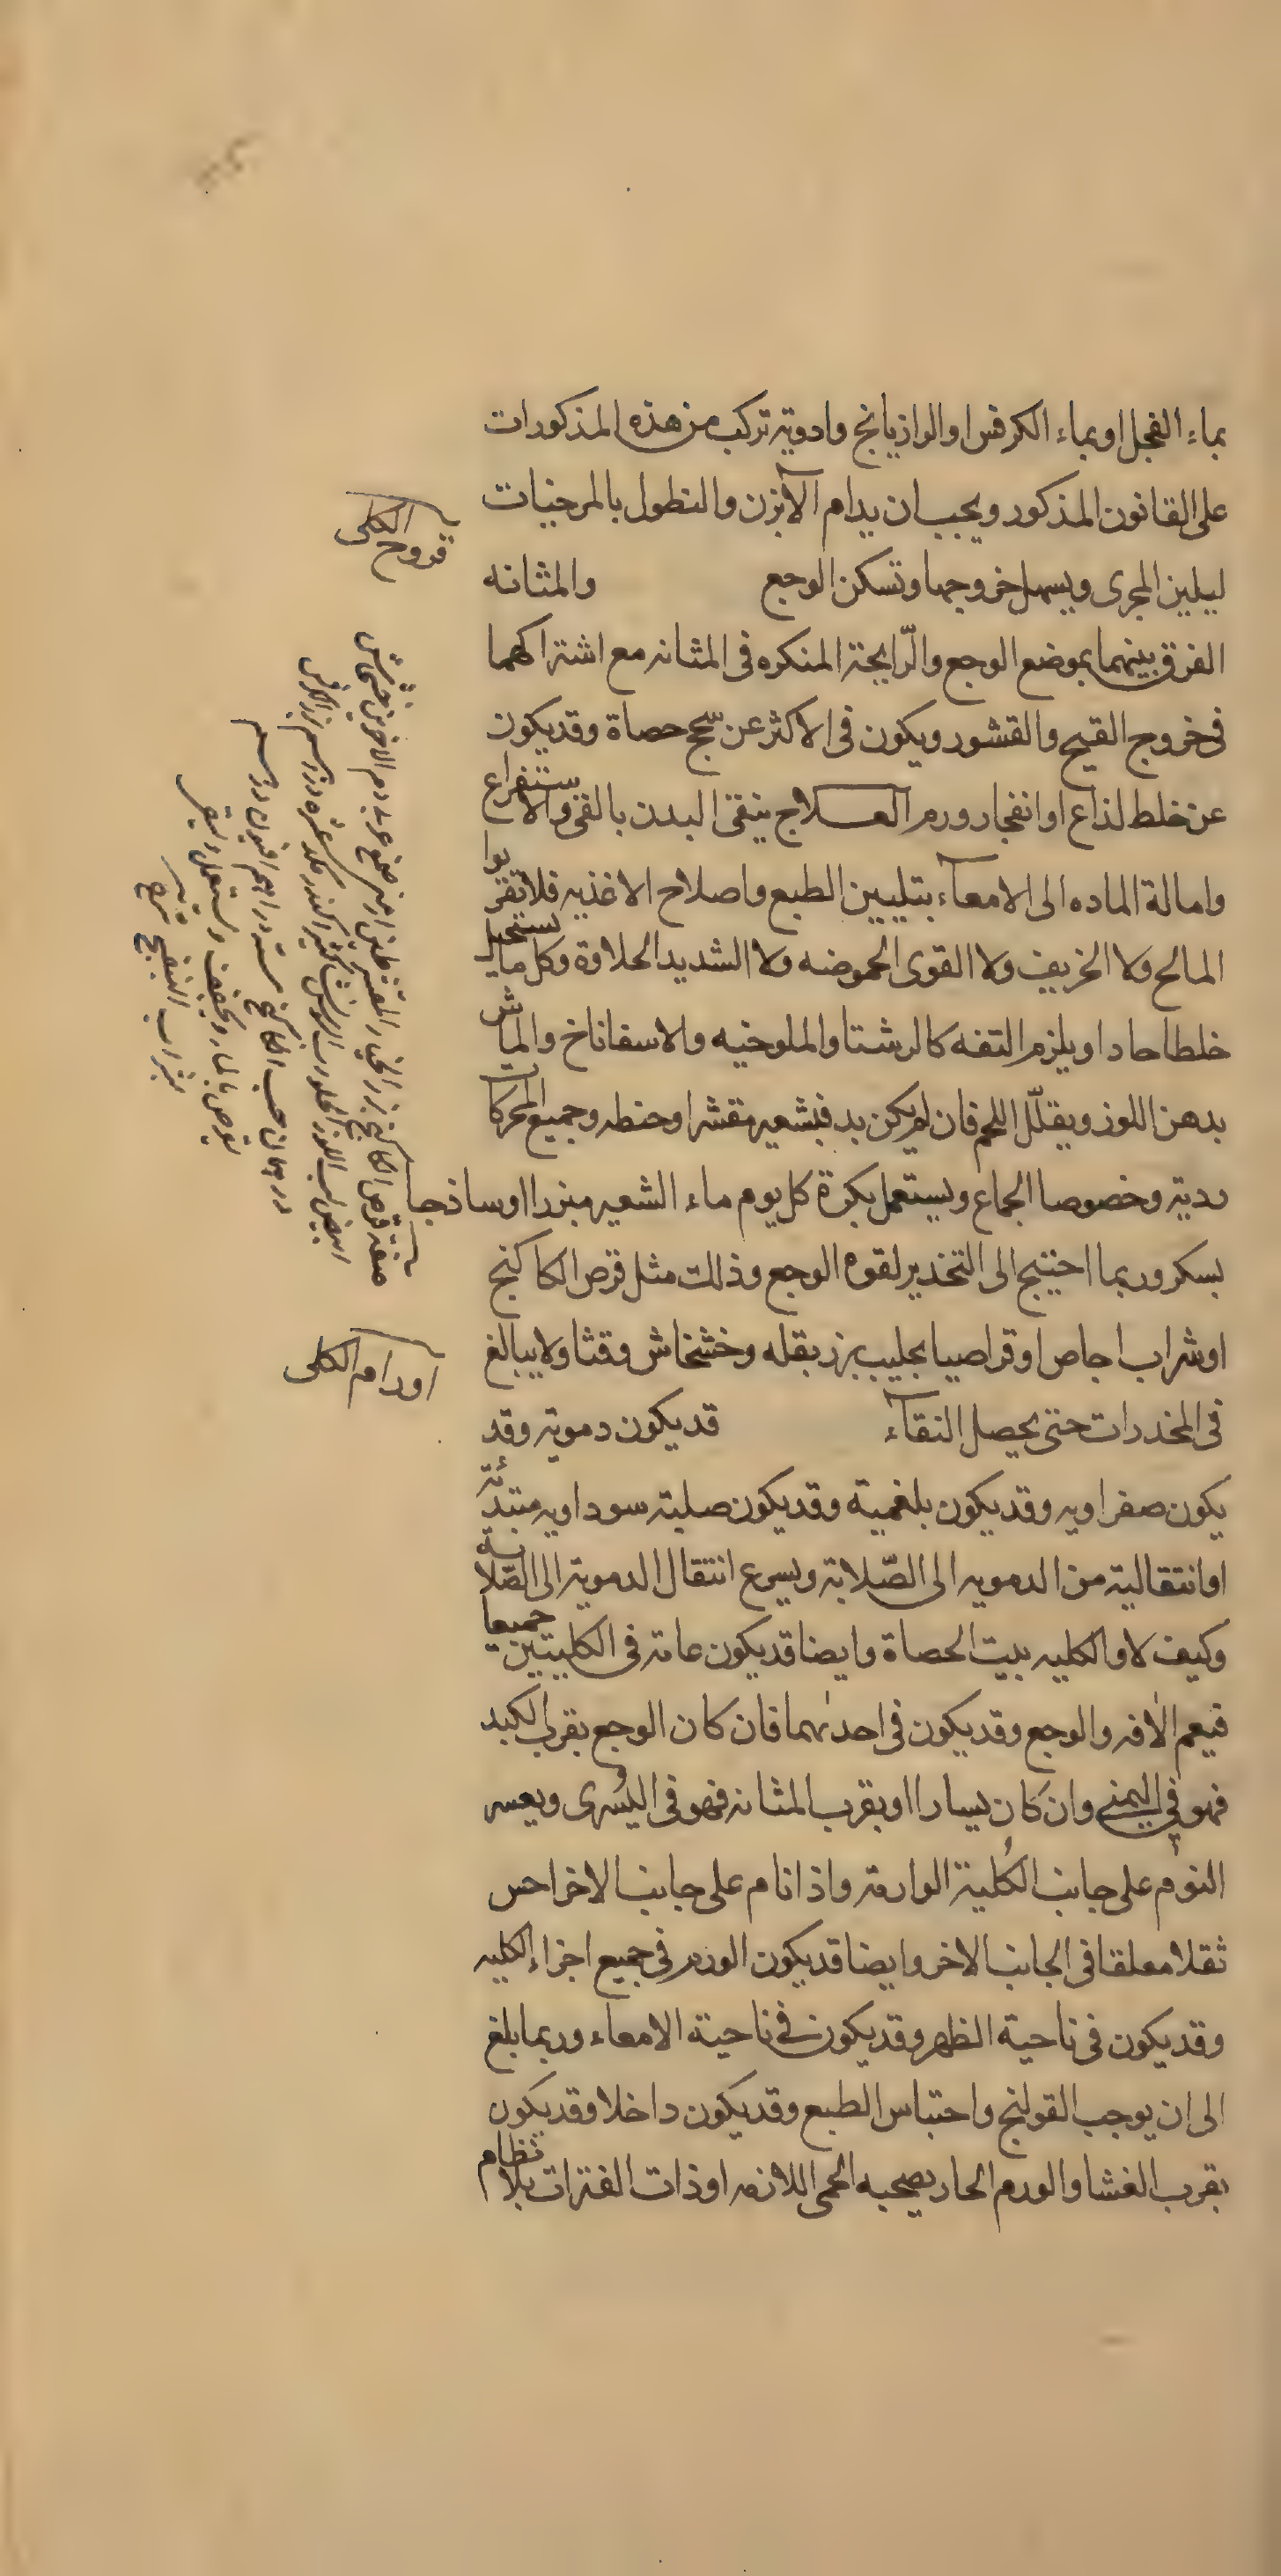 بماء الفجل او بماء الكرفس او الرازيانج وادوية تركب من هذه المذكورات
على القانون المذكور ويجب ان يدام الآبزن والنطول بالمرخيات
ليلين المجرى ويسهل خروجها وتسكن الوجع
قروح الكلى
والمثانه
الفرق بينهما بموضع الوجع والرّايحة المنكره فى المثانه مع اشتراكهما
فى خروج القيح والقشور ويكون فى الاكثر عن سحج حصاة وقد يكون
عن خلط لذاع او انفجار ورم العلاج ينقى البدن بالقئ والاستفراغ
وامالة الماده الى الامعآء بتليين الطبع واصلاح الاغذيه فلا تقربوا
المالح ولا الحريف ولا القوى الحموضه ولا الشديد الحلاوة وكل ما يستحيل
خلطا حادا ويلزم التفه كالرشتا والملوخيه والاسفاناخ والماش
بدهن اللوز ويقلّل اللحم فان لم يكن بد فبشعير مقشر او حنطه وجميع المحركات
ردية وخصوصا الجماع ويستعمل بكرة كل يوم ماء الشعير مبزرا او ساذجا
بسكر وربما احتيج الى التخدير لقوة الوجع وذلك مثل قرص الكاكنج
او شراب اجاص او قراصيا بحليب بزر بقله وخشخاش وقثا ولا يبالغ
فى المخدرات حتى يحصل النقآء
اورام الكلى
قد يكون دموية وقد
يكون صفراويه وقد يكون بلغمية وقد يكون صلبة سوداويه مبتدئة
او انتقالية من الدمويه الى الصّلابة ويسرع انتقال الدموية الى الصّلابة
وكيف لا والكليه بيت الحصاة وايضا قد يكون عامة فى الكليتين جميعا
فيعم الآفه والوجع وقد يكون فى احدىهما فان كان الوجع بقرب الكبد
فهو فى اليمنى وان كان يسارا او بقرب المثانه فهو فى اليُسرى ويعسر
النوم على جانب الكُلية الوارمة واذا نام على جانب الاخر احس
ثقلا معلقا فى الجانب الاخر وايضا قد يكون الورم فى جميع اجزاء الكليه
وقد يكون فى ناحية الظهر وقد يكون فى ناحية الامعاء وربما بلغ
الى ان يوجب القولنج واحتباس الطبع وقد يكون داخلا وقد يكون
بقرب الغشا والورم الحار يصحبه الحمى اللازمه او ذات الفترات بلا نظام
صفة قرص الكاكنج بزر الخيار المقشر طين ارمنى صمغ عربى دم الاخوين خشخاش
ابيض لب اللوز الحلو
درهمان حب الكاكنج ستة دراهم افيون درهم
يقرص بالماء ويجفف ويستعمل
بشراب البنفسج